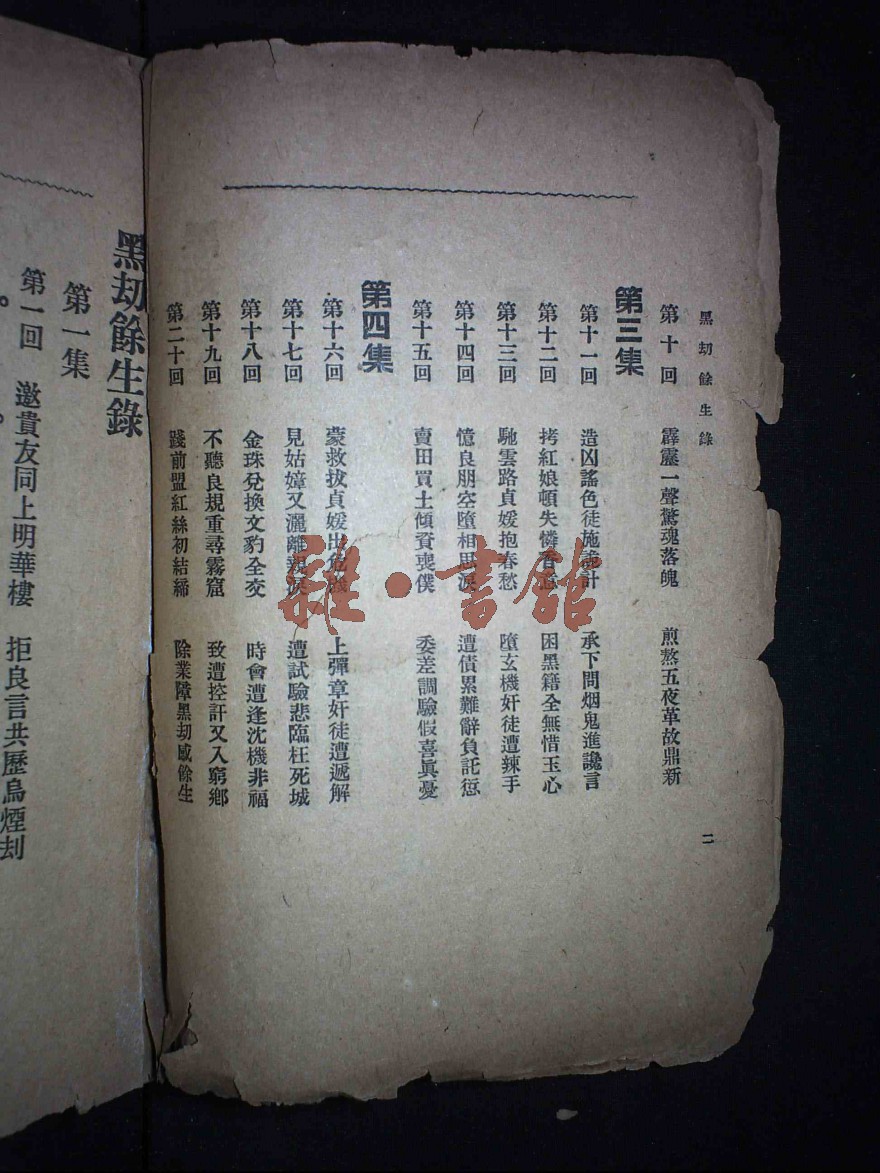 黑刧餘生錄
二
第十回 霹靂一聲驚魂落魄 煎熬五夜革故鼎新
第三集
第十一回 造凶謠色徒施詭計 承下問烟鬼進讒言
第十二回 拷紅娘頓失憐香意 困黑籍全無惜玉心
第十三回 馳雲路貞媛抱春愁 墮玄機奸徒遭辣手
第十四回 憶良朋空墮相思淚 遭債累難辭負託愆
第十五回 賣田買土傾資喪僕 委差調驗假喜眞憂
第四集
第十六回 蒙救拔貞媛出危機 上彈章奸徒遭遞解
第十七回 見姑嫜又灑離親淚 遭試驗悲臨枉死城
第十八回 金珠兌換文豹全交 時會遭逢沈機非福
第十九回 不聽良規重尋霧窟 致遭控訐又入窮鄉
第二十回 踐前盟紅絲初結締 除業障黑刧感餘生
黑刧餘生錄
第一集
第一回 邀貴友同上明華樓 拒良言共歷烏煙刧
雜·書館